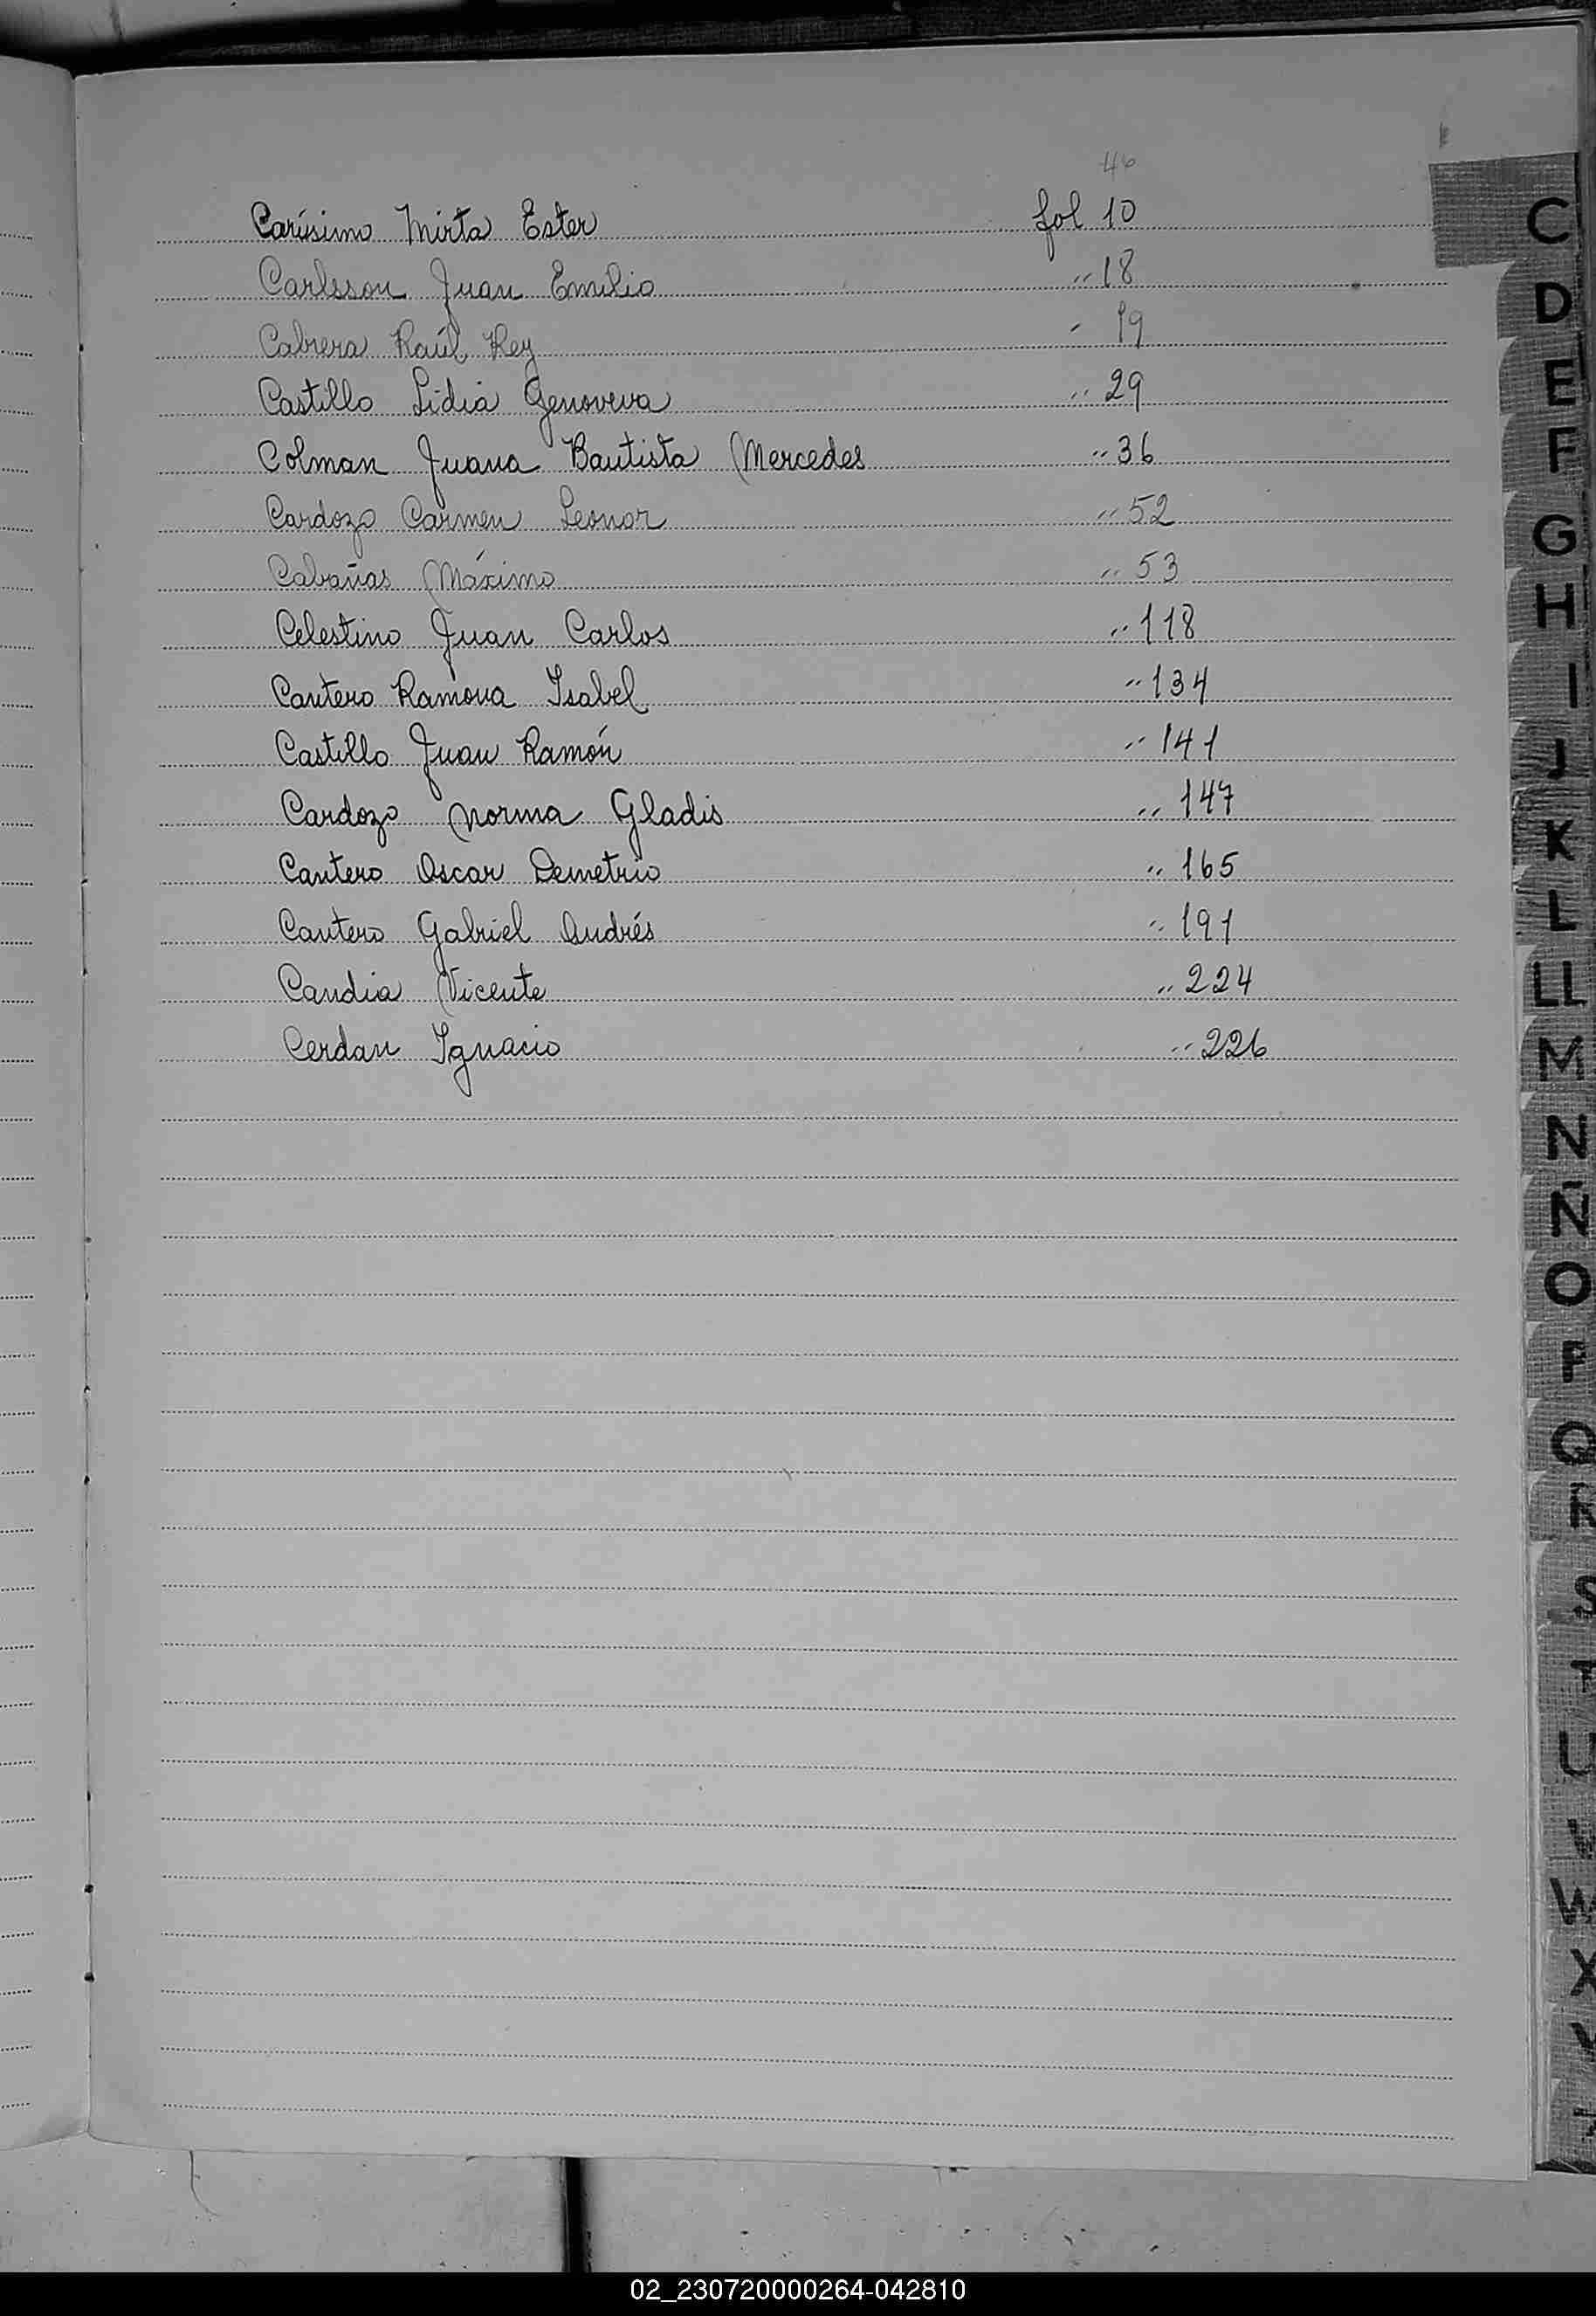 46
Carísimo Mirta Ester fol 10
Carlsson Juan Emilio " 18
Cabrera Raúl Rey " 19
Castillo Lidia Genoveva " 29
Colman Juana Bautista Mercedes " 36
Cardozo Carmen Leonor " 52
Cabañas Máximo " 53
Celestino Juan Carlos " 118
Cantero Ramona Isabel " 134
Castillo Juan Ramón " 141
Cardozo Norma Gladis " 147
Cantero Oscar Demetrio " 165
Cantero Gabriel Andrés " 191
Candia Vicente " 224
Cerdan Ignacio " 226
C
D
E
F
G
H
I
J
K
L
LL
M
N
Ñ
O
P
Q
R
S
T
U
V
W
X
Y
02_230720000264-042810